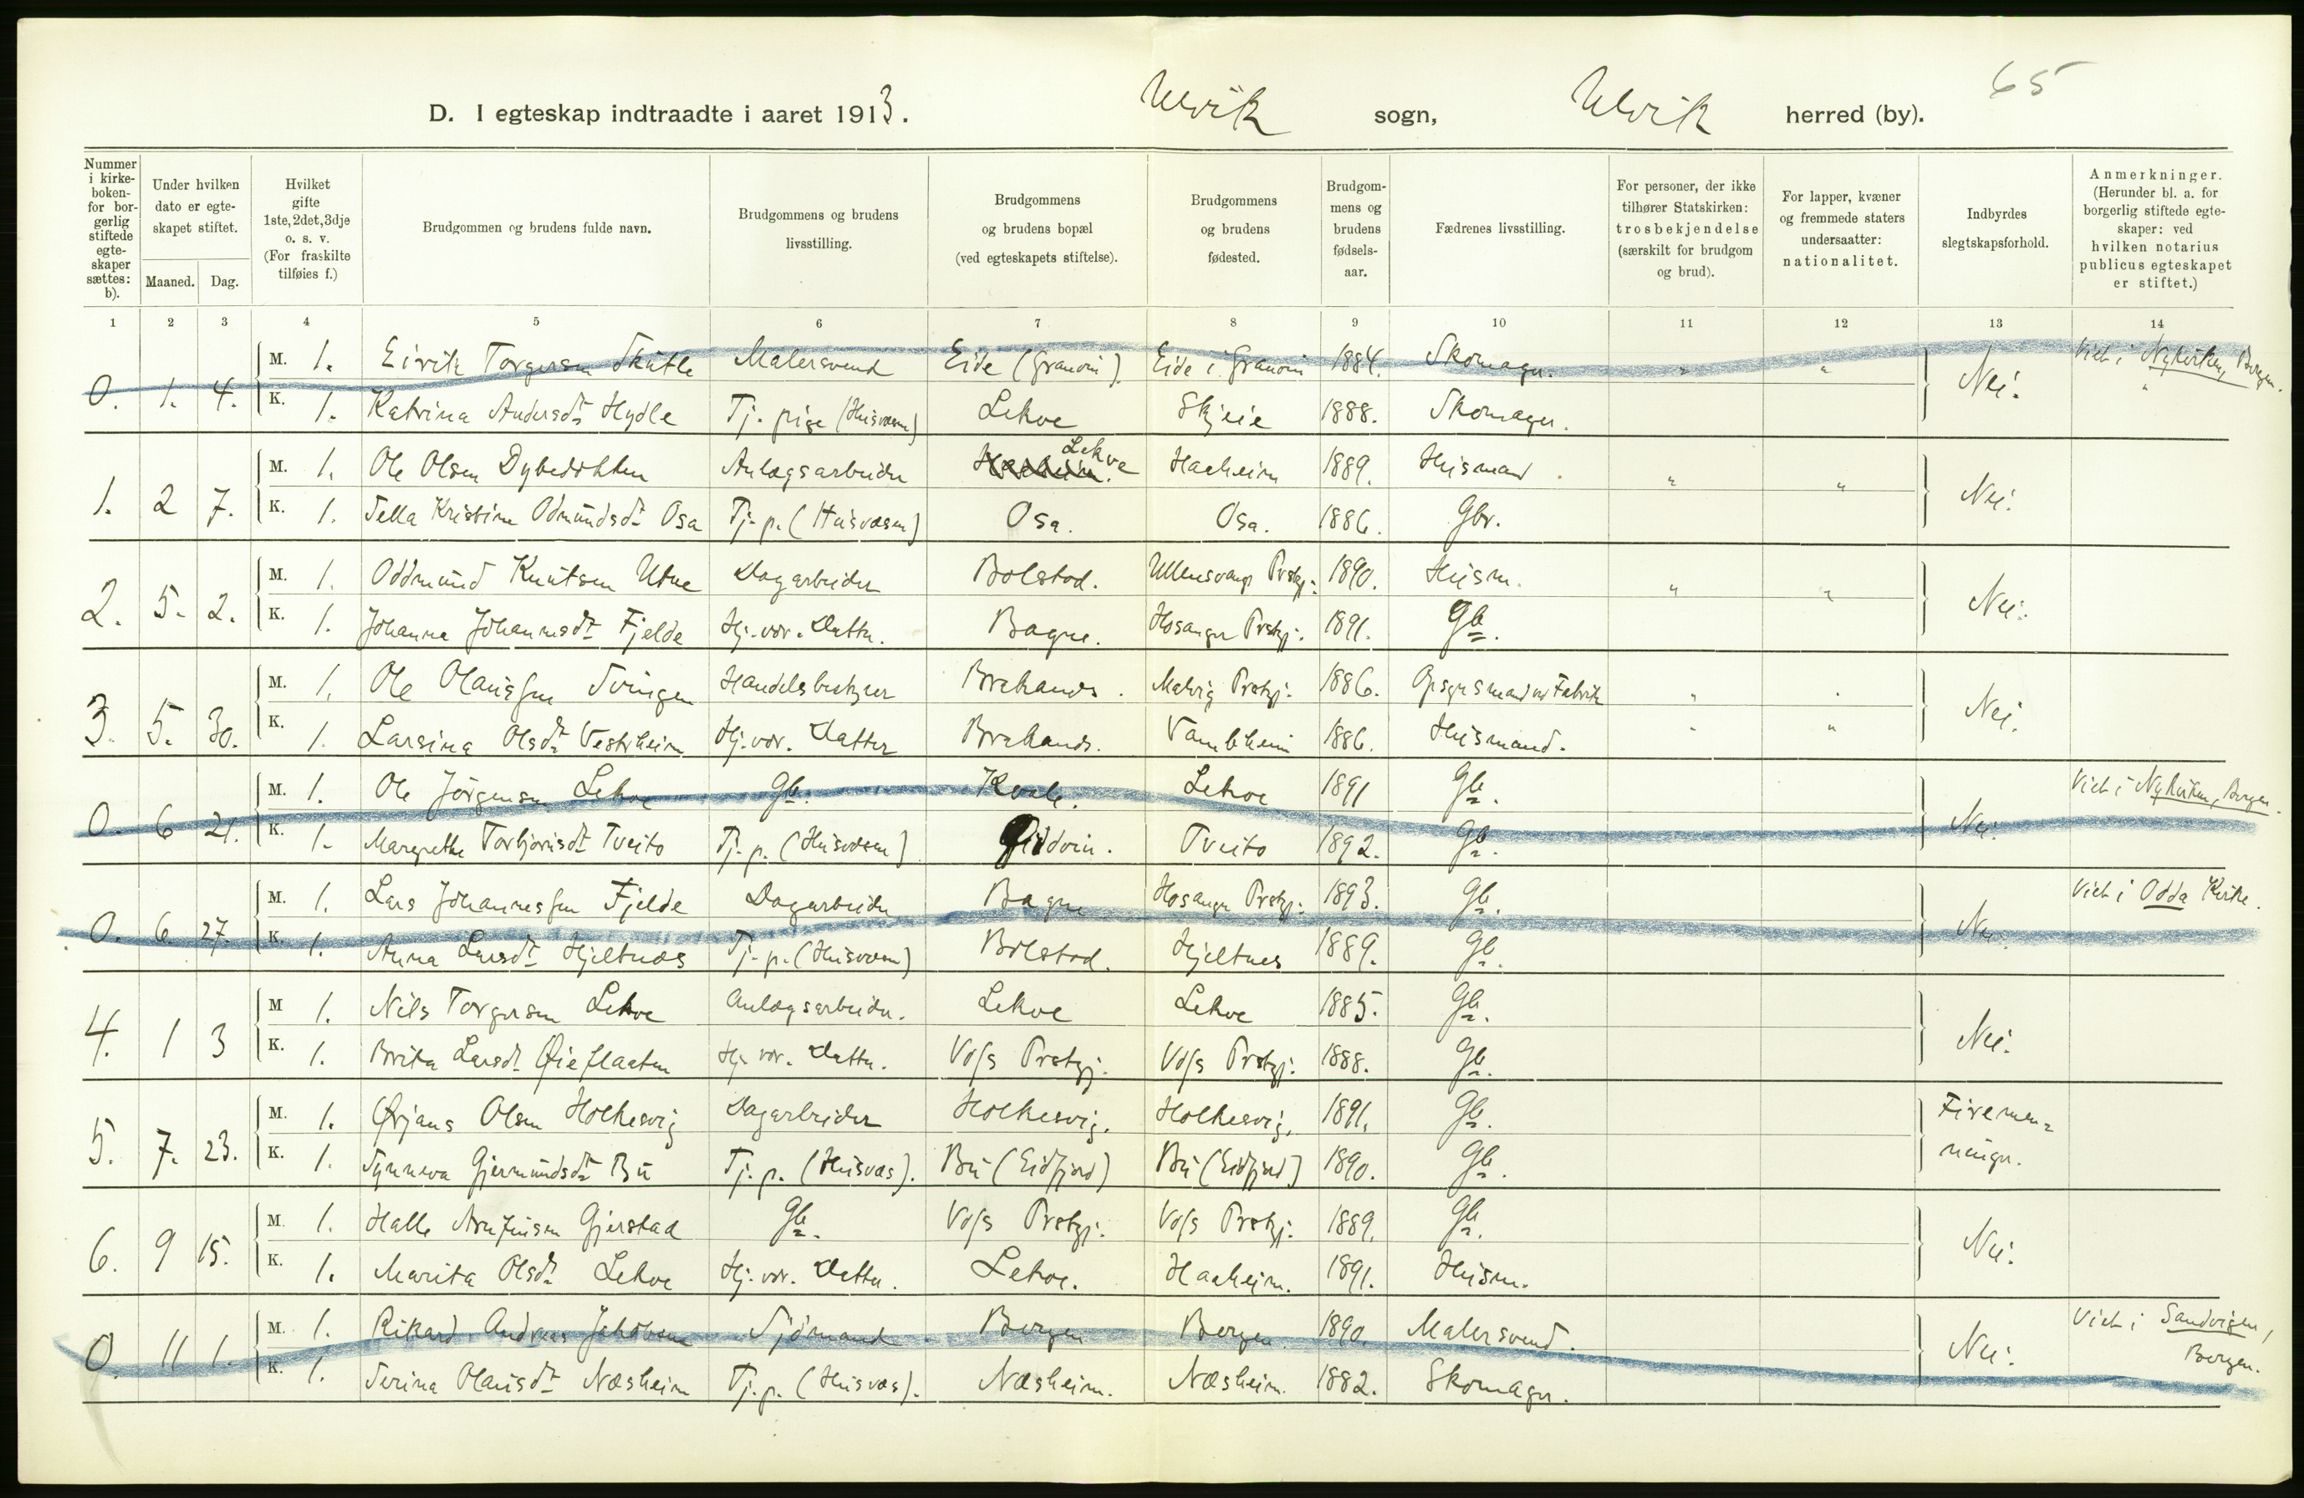 65
D. I egteskap indtraadte i aaret 1913. Ulvik sogn, Ulvik herred (by).
Nummer i kirkeboken- for borgerlig stiftede egteskaper sættes: b).
Under hvilken dato er egteskapet stiftet.
Maaned. Dag.
Hvilket gifte 1ste, 2det, 3dje o. s. v. (For fraskilte tilføies f.)
Brudgommen og brudens fulde navn.
Brudgommens og brudens livsstilling.
Brudgommens og brudens bopæl (ved egteskapets stiftelse).
Brudgommens og brudens fødested.
Brudgommens og brudens fødselsaar.
Fædrenes livsstilling.
For personer, der ikke tilhører Statskirken: trosbekjendelse (særskilt for brudgom og brud).
For lapper, kvæner og fremmede staters undersaatter: nationalitet.
Indbyrdes slegtskapsforhold.
Anmerkninger. (Herunder bl. a. for borgerlig stiftede egteskaper: ved hvilken notarius publicus egteskapet er stiftet.)
1 2 3 4 5 6 7 8 9 10 11 12 13 14
0. 1. 4. M. 1. Eirik Torgersen Skütle Malersvend Eide (Granvin). Eide i Granvin 1884. Skomager. " " Nei. Viet i Nykirken, Bergen.
K. 1. Katrina Andersdt Hydle Tj. pige (Husvæsen) Lekve Skjeie 1888. Skomager.
1. 2 7. M. 1. Ole Olsen Dybedokken Anlægsarbeider Haaheim. Lekve Haaheim 1889. Husmand. " " Nei.
K. 1. Tella Kristine Odmundsdt Osa Tj. p. (Husvæsen) Osa. Osa. 1886. Gbr.
2. 5. 2. M. 1. Oddmund Knutsen Utne Dagarbeider Bolstad. Ullensvang Prstgj. 1890. Husm. " " Nei.
K. 1. Johanna Johannesdt Fjelde Hj. vær. Datter. Bagne. Hosanger Prstgj. 1891. Gb.
3. 5. 30. M. 1. Ole Olaussen Svingen Handelsbestyrer Brakanes. Malvig Prstgj. 1886. Opsynsmand ved Fabrik " " Nei.
K. 1. Larsina Olsdt Vestrheim Hj. vær. Datter Brakanes. Vambheim 1886. Husmand. " "
0. 6 21. M. 1. Ole Jörgensen Lekve Gb. Kvale. Lekve 1891 Gb. Nei. Viet i Nykirken, Bergen.
K. 1. Margrethe Torbjørnsdt Tveito Tj. p. (Husvæsen) Tveito 1892. Gb.
0. 6. 27. M. 1. Lars Johannessen Fjelde Dagarbeider Bagne Hosanger Prstgj. 1893. Gb. Nei. Viet i Odda Kirke.
K. 1. Anna Larsdt Hjeltnæs Tj. p. (Husvæsen) Bolstad. Hjeltnes 1889. Gb.
4. 1 3 M 1. Nils Torgersen Lekve Anlægsarbeider. Lekve Lekve 1885. Gb. Nei.
K. 1. Brita Larsdt Øieflaaten Hj. vær. Datter. Voss Prstgj. Voss Prstgj. 1888. Gb.
5. 7. 23. M. 1. Ørjans Olsen Holkesvig Dagarbeider Holkesvig. Holkesvig. 1891. Gb. Firemenninger.
K. 1. Synneva Gjermundsdt Bu Tj. p. (Husvæs). Bu (Eidfjord) Bu (Eidfjord) 1890. Gb.
6. 9 15. M. 1. Halle Arnfinsen Gjerstad Gb. Voss Prstgj. Voss Prstgj. 1889. Gb. Nei.
K. 1. Marita Olsdt Lekve Hj. vær. Datter. Lekve. Haaheim. 1891. Husm.
0. 11 1. M. 1. Rikard Andreas Jakobsen Sjömand Bergen Bergen. 1890. Malersvend. Nei. Viet i Sandvigen, Bergen.
K. 1. Serina Olausdt Næsheim Tj. p. (Husvæs). Næsheim. Næsheim. 1882. Skomager.